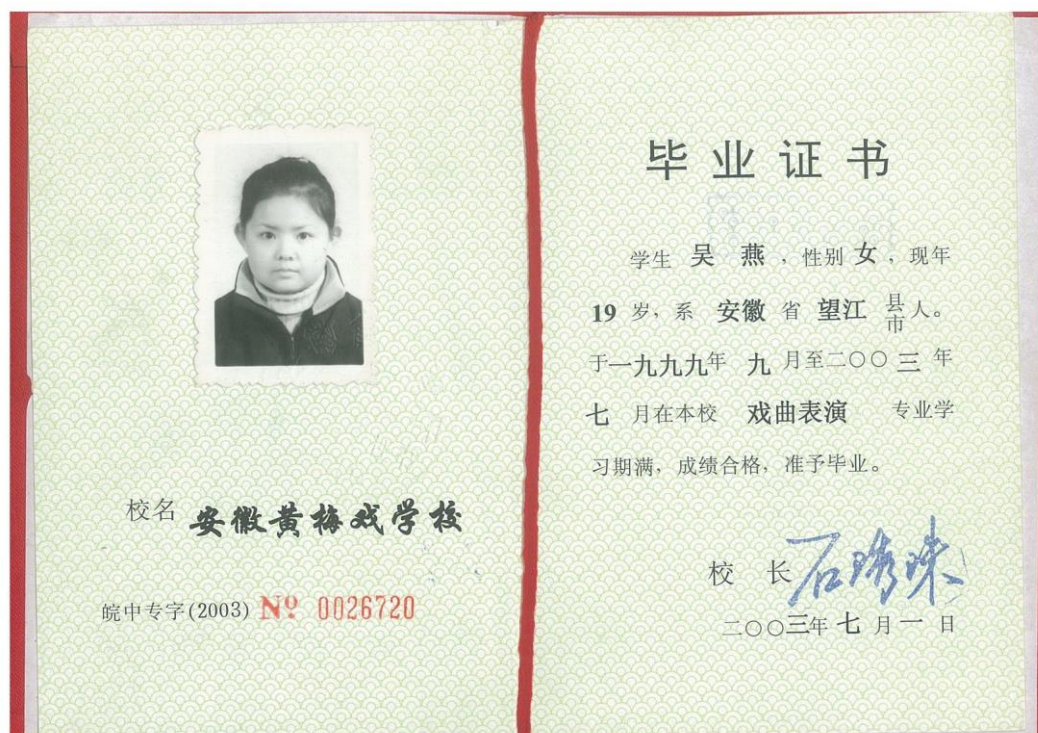 校名 安徽黄梅戏学校
皖中专字(2003) № 0026720
毕业证书
学生 吴燕，性别女，现年
19岁，系 安徽 省 望江 县市人。
于一九九九年 九 月至二〇〇三年
七 月在本校 戏曲表演 专业学
习期满，成绩合格，准予毕业。
校 长 石琇珠
二〇〇三年 七 月 一 日